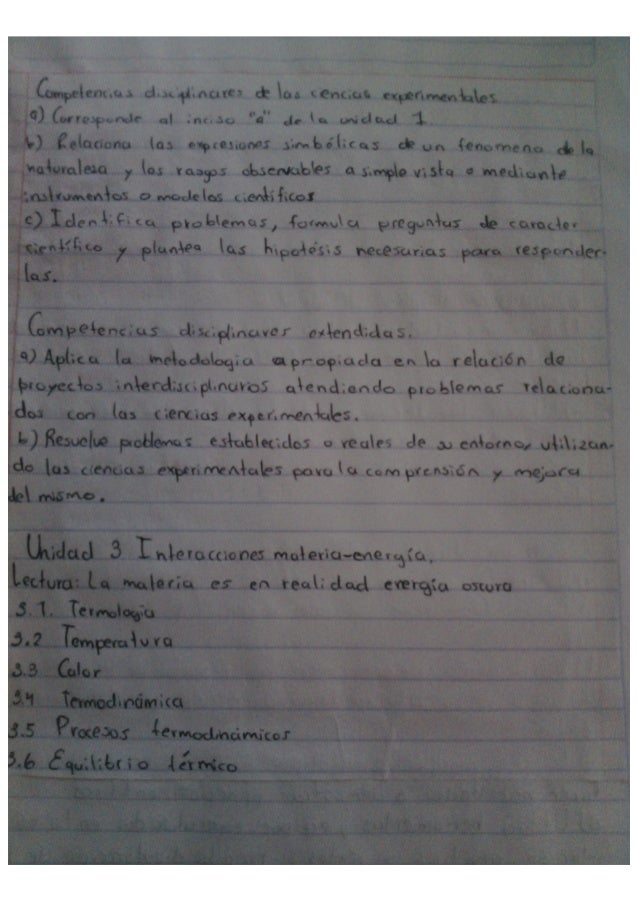 Competencias disciplinares de las cencias experimentales
a) Corresponde al inciso "a" de la unidad 1.
b) Relaciona las expresiones simbólicas de un fenomeno de la
naturaleza y los rasgos observables a simple vista o mediante
instrumentos o modelos científicos
c) Identifica problemas, formula preguntas de caracter
científico y plantea las hipotésis necesarias para responder-
las.
Competencias disciplinares extendidas.
a) Aplica la metodologia apropiada en la relación de
proyectos interdisciplinarios atendiendo problemas relaciona-
dos con las ciencias experimentales.
b) Resuelve problemas establecidos o reales de su entorno, utilizan-
do las ciencias experimentales para la comprensión y mejora
del mismo.
Unidad 3 Interacciones materia-energía.
Lectura: La materia es en realidad energía oscura
3.1. Termologia
3.2 Temperatura
3.3 Calor
3.4 Termodinámica
3.5 Procesos termodinámicos
3.6 Equilibrio térmico